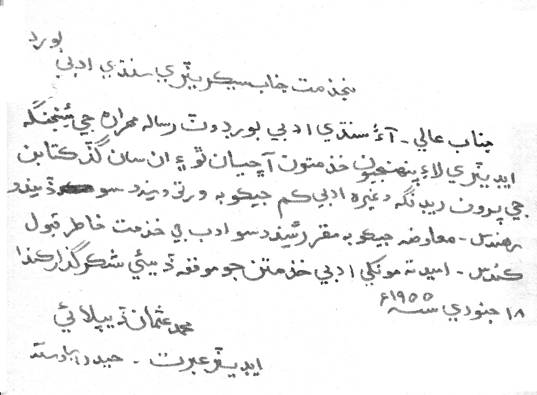 بخدمت جناب سيڪريٽري سنڌي ادبي بورڊ
جناب عالي۔ آءٌ سنڌي ادبي بورڊ وٽ رساله مهراڻ جي مئنيجنگ
ايڊيٽري لاءِ پنهنجيون خدمتون آڇيان ٿو ۽ ان سان گڏ ڪتابن
جي پروف ريڊنگ وغيره ادبي ڪم جيڪو به ورتو ويندو سو ڏيندو
رهندس۔ معاوضه جيڪو به مقرر ٿيندو سو ادب جي خدمت خاطر قبول
ڪندس۔ اميد ته مونکي ادبي خدمتن جو موقعه ڏيئي شڪر گذار ڪندا
١٨ جنوري سنه ١٩٥٥ع
محمد عثمان ڏيپلائي
ايڊيٽر عبرت۔ حيدرآباد سنڌ